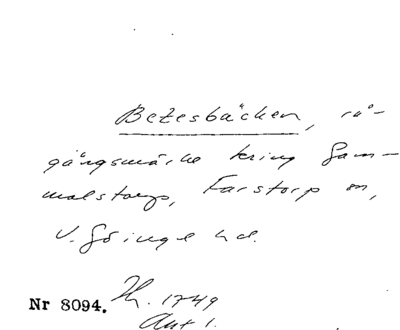 Betesbäcken, rå-
gångsmärke kring Gam-
malstorp, Farstorp sn,
V. Göinge hd.
Nr 8094. Th. 1749
Akt 1.